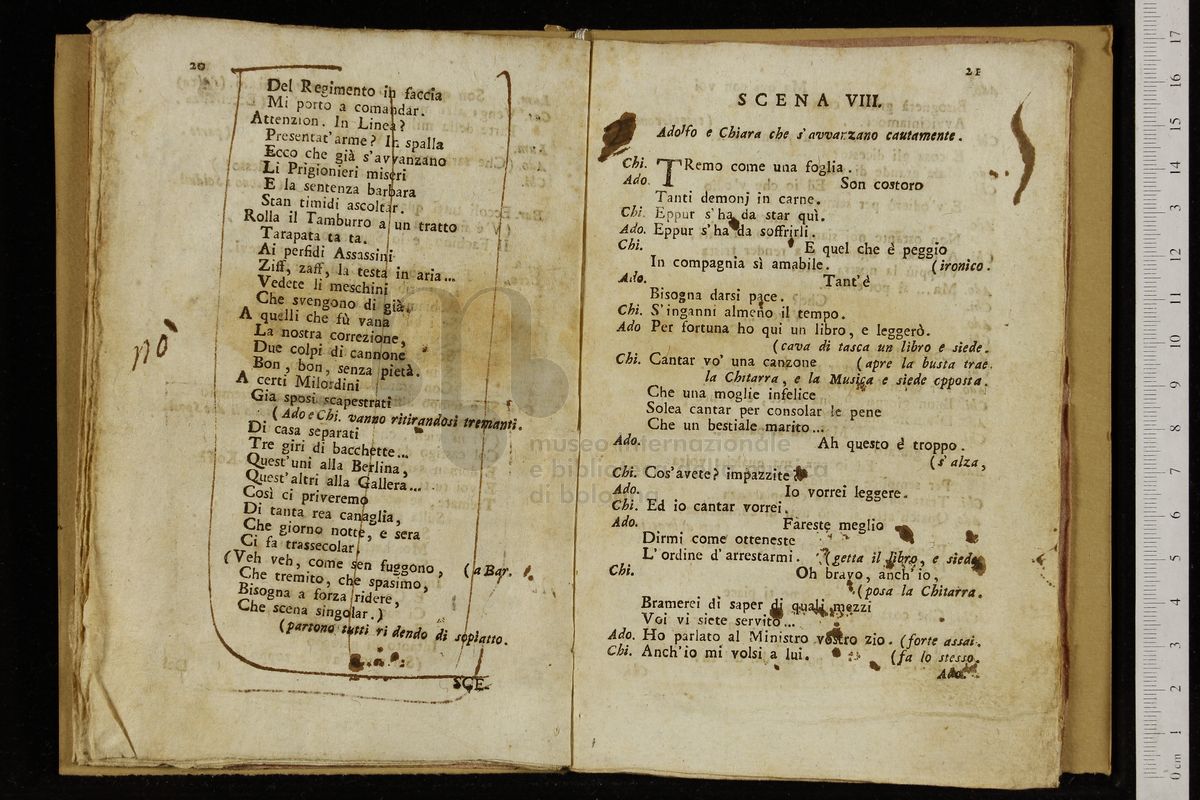 20
Del Regimento in faccia
Mi porto a comandar.
Attenzion. In Linea?
Presentat'arme? In spalla
Ecco che già s'avvanzano
Li Prigionieri miseri
E la sentenza barbara
Stan timidi ascoltar.
Rolla il Tamburro a un tratto
Tarapata ta ta.
Ai perfidi Assassini
Ziff, zaff, la testa in aria...
Vedete li meschini
Che svengono di già.
A quelli che fù vana
La nostra correzione,
Due colpi di cannone
Bon, bon, senza pietà.
A certi Milordini
Già sposi scapestrati
(Ado e Chi. vanno ritirandosi tremanti.
Di casa separati
Tre giri di bacchette...
Quest'uni alla Berlina,
Quest'altri alla Gallera...
Così ci priveremo
Di tanta rea canaglia,
Che giorno notte, e sera
Ci fa trassecolar.
(Veh veh, come sen fuggono, (a Bar.
Che tremito, che spasimo,
Bisogna a forza ridere,
Che scena singolar.)
(partono tutti ridendo di soppiatto.
SCE.
nò
21
SCENA VIII.
Adolfo e Chiara che s'avvanzano cautamente.
Chi. TRemo come una foglia.
Ado. Son costoro
Tanti demonj in carne.
Chi. Eppur s'ha da star quì.
Ado. Eppur s'ha da soffrirli.
Chi. E quel che è peggio
In compagnia sì amabile. (ironico.
Ado. Tant'è
Bisogna darsi pace.
Chi. S'inganni almeno il tempo.
Ado Per fortuna ho qui un libro, e leggerò.
(cava di tasca un libro e siede.
Chi. Cantar vo' una canzone (apre la busta trae
la Chitarra, e la Musica e siede opposta.
Che una moglie infelice
Solea cantar per consolar le pene
Che un bestiale marito...
Ado. Ah questo è troppo.
(s'alza,
Chi. Cos'avete? impazzite?
Ado. Io vorrei leggere.
Chi. Ed io cantar vorrei.
Ado. Fareste meglio
Dirmi come otteneste
L'ordine d'arrestarmi. (getta il libro, e siede
Chi. Oh bravo, anch'io,
(posa la Chitarra.
Bramerei di saper di quali mezzi
Voi vi siete servito...
Ado. Ho parlato al Ministro vostro zio. (forte assai.
Chi. Anch'io mi volsi a lui. (fa lo stesso.
Ado.
museo internazionale
e biblioteca della musica
di bologna